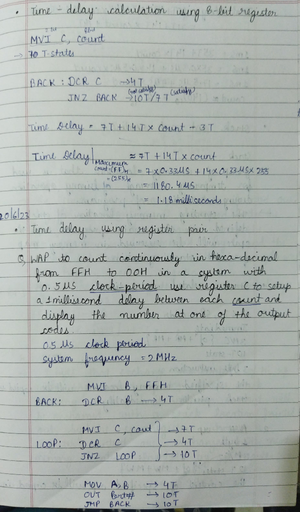 • Time - delay calculation using 8-bit register
MVI C, count
→ 7 T-states
BACK: DCR C → 4T
JNZ BACK → 10T/7T
Time Delay = 7T + 14T × Count - 3T
Time Delay ≈ 7T + 14T × count
Maximum
= 7 × 0.33μS + 14 × 0.33μS × 255
= 1180.4μS
= 1.18 milliseconds
20/6/23
• Time delay using register pair
Q. WAP to count continuously in hexa-decimal
from FFH to 00H in a system with
0.5μS clock-period use register C to setup
a 1 millisecond delay between each count and
display the number at one of the output
codes.
0.5 μs clock period
System frequency = 2MHz
MVI B, FFH
BACK: DCR B → 4T
MVI C, count → 7T
LOOP: DCR C → 4T
JNZ LOOP → 10T
MOV A, B → 4T
OUT → 10T
JMP BACK → 10T